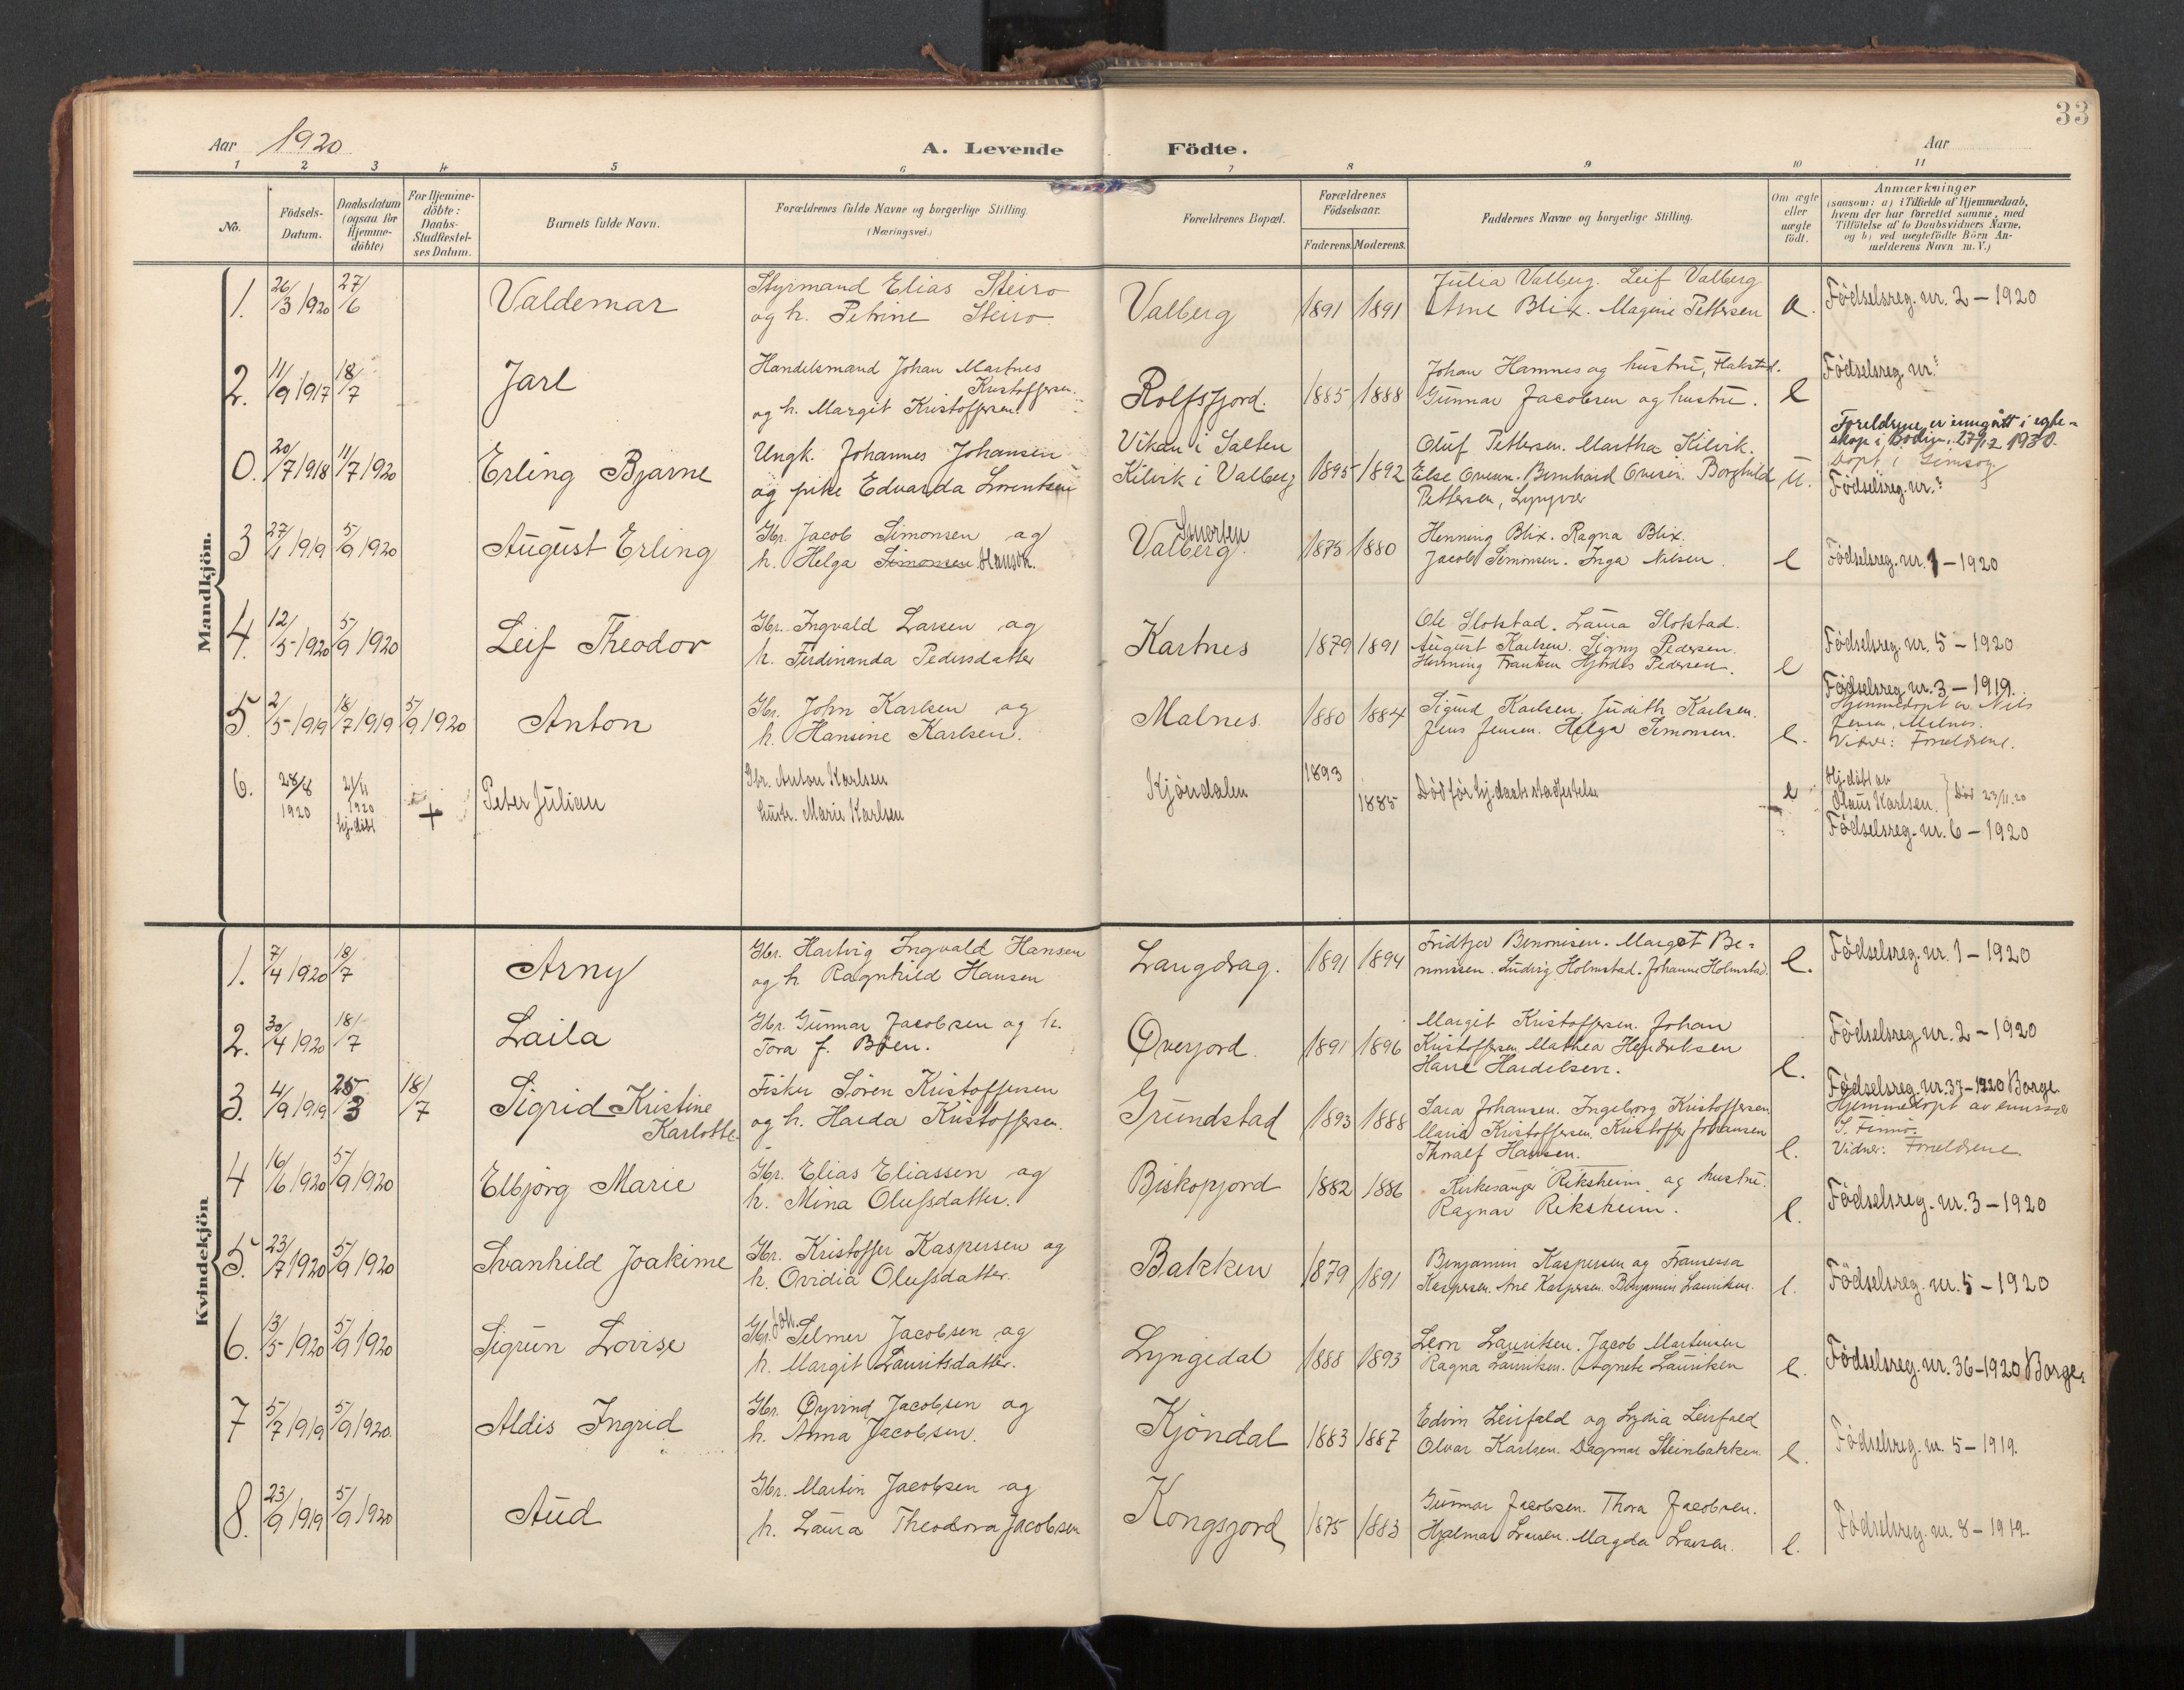 33
Aar 1920
A. Levende Födte.
Aar
1 2 3 4 5 6 7 8 9 10 11
No.
Födsels-
Datum.
Daabsdatum
(ogsaa for
Hjemme-
döbte)
For Hjemme-
döbte:
Daabs-
Stadfæstel-
ses Datum.
Barnets fulde Navn.
Forældrenes fulde Navne og borgerlige Stilling
(Næringsvei.)
Forældrenes Bopæl.
Forældrenes
Födselsaar.
Faderens. Moderens.
Faddernes Navne og borgerlige Stilling.
Om ægte
eller
uægte
födt.
Anmærkninger
(saasom: a) i Tilfælde af Hjemmedaab,
hvem der har forrettet samme, med
Tilföielse af to Daabsvidners Navne.
og b) ved uægtefödte Börn An-
melderens Navn m. V.)
Mandkjön.
1. 26/3 1920 27/6 Valdemar
Styrmand Elias Steiro
og h. Petrine Steiro
Valberg 1891 1891
Julia Valberg. Leif Valberg
Arne Blix. Magine Pettersen
Fødselsreg. nr. 2 – 1920
2. 11/9 1917 18/7 Jarl
Handelsmand Johan Martnes
Kristoffersen
og h. Margit Kristoffersen.
Rolfsfjord. 1885 1888
Johan Hamnes og hustru, Flakstad.
Gunnar Jacobsen og hustru.
e
Fødselsreg. nr.
0. 20/7 1918 11/7 1920 Erling Bjarne
Ungk. Johannes Johansen
og pike Edvarda Lorentsen
Vikan i Salten
Kilvik i Valberg 1895 1892
Oluf Pettersen. Martha Kilvik.
Else Ovesen. Bernhard Ovesen. Borghild
Pettersen, Lyngvær
u.
Foreldrene er inngått i egte-
skap i Bodin, 27/12 1930.
Døpt i Gimsøy
Fødselsreg. nr.
3 27/1 1919 5/9 1920 August Erling
Gbr. Jacob Simonsen og
h. Helga Simonsen Hanson.
Smorten
Valberg. 1875 1880
Henning Blix. Ragna Blix.
Jacob Simonsen. Inga Nilsen.
e
Fødselsreg. nr. 1 – 1920
4. 12/5 1920 5/9 1920 Leif Theodor
Gbr. Ingvald Larsen og
h. Ferdinanda Pedersdatter
Kartnes 1879 1891
Ole Slotstad. Laura Slotstad.
August Karlsen. Signy Pedersen.
Henning Frantzen Hjørdis Pedersen.
e
Fødselsreg. nr. 5 – 1920
5. 2/5 1919 18/7 1919 5/9 1920 Anton
Gbr. John Karlsen og
h. Hansine Karlsen.
Malnes 1880 1884
Sigurd Karlsen. Judith Karlsen.
Jens Jensen. Helga Simonsen.
e.
Fødselsreg. nr. 3 – 1919.
Hjemmedøpt av Nils
Jensen, Malnes.
Vidner: Forældrene.
6. 28/8 1920 21/11 1920 hj.døbt + Peter Julian
Gbr. Anton Karlsen
hustr. Marie Karlsen
Kjøndalen 1893 1885
Død før hj.daabs stadfestelse
e
Hj.døbt av
Olaus Karlsen. } Død 23/11.20
Fødselsreg. nr. 6 – 1920
Kvindekjön
1. 7/4 1920 18/7 Arny
Gbr. Hartvig Ingvald Hansen
og h. Ragnhild Hansen
Langdrag. 1891 1894
Fridtjov Benonisen. Margot Be-
nonisen. Ludvig Holmstad. Johanne Holmstad.
e.
Fødselsreg. nr. 1 – 1920
2. 30/4 1920 18/7 Laila
Gbr. Gunnar Jacobsen og h.
Tora f. Bøen.
Øverjord. 1891 1896
Margit Kristoffersen. Johan
Kristoffersen. Mathea Hendriksen
e.
Fødselsreg. nr. 2 – 1920
3. 4/9 1919 25/3 18/7 Sigrid Kristine
Karlotte
Fisker Søren Kristoffersen
og h. Harda Kristoffersen.
Grundstad 1893 1888
Sara Johansen. Ingeborg Kristoffersen
Maria Kristoffersen. Kristoffer Johansen
Thoralf Hansen.
e.
Fødselsreg. nr. 37 – 1920 Borge
Hjemmedøpt av emissær
Vidner: Forældrene
4 16/6 1920 5/9 1920 Elbjørg Marie
Gbr. Elias Eliassen og
h. Mina Olufsdatter.
Biskopjord 1882 1886
Kirkesanger Riksheim og hustru.
Ragnar Riksheim.
e.
Fødselsreg. nr. 3 – 1920
5. 23/7 1920 5/9 1920 Svanhild Joakime
Gbr. Kristoffer Kaspersen og
h. Ovidia Olufsdatter.
Bakken 1879 1891
Benjamin Kaspersen og Fransessa
Kaspersen. Ane Kaspersen. Benjamin Lauritsen.
e.
Fødselsreg. nr. 5 – 1920
6. 13/5 1920 5/9 1920 Sigrun Lovise
Joh.
Gbr. Selmer Jacobsen og
h. Margit Lauritsdatter.
Lyngedal 1888 1893
Leon Lauritsen. Jacob Martinsen
Ragna Lauritsen. Agnete Lauritsen
e.
Fødselsreg. nr. 36 – 1920 Borge.
7 5/7 1919 5/9 1920. Aldis Ingrid
Gbr. Øyvind Jacobsen og
h. Anna Jacobsen.
Kjøndal 1883 1887
Edvin Leirfald og Lydia Leirfald
Olvar Karlsen. Dagmar Steinbakken.
e.
Fødselsreg. nr. 5 – 1919.
8. 23/9 1919 5/9 1920 Aud
Gbr. Martin Jacobsen og
h. Laura Theodora Jacobsen
Kongsjord 1875 1883
Gunnar Jacobsen. Thora Jacobsen.
Hjalmar Larsen. Magda Larsen.
e.
Fødselsreg. nr. 8 – 1919.